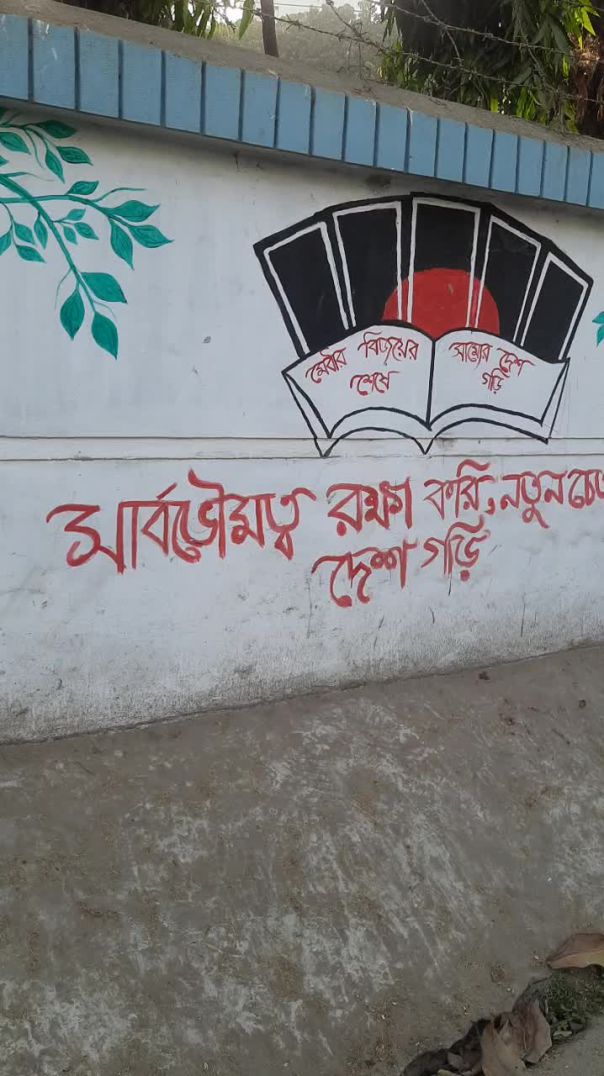 মেধার বিজয়ের
শেষে
সাম্যের দেশ
গড়ি
সার্বভৌমত্ব রক্ষা করি, নতুন
দেশ গড়ি